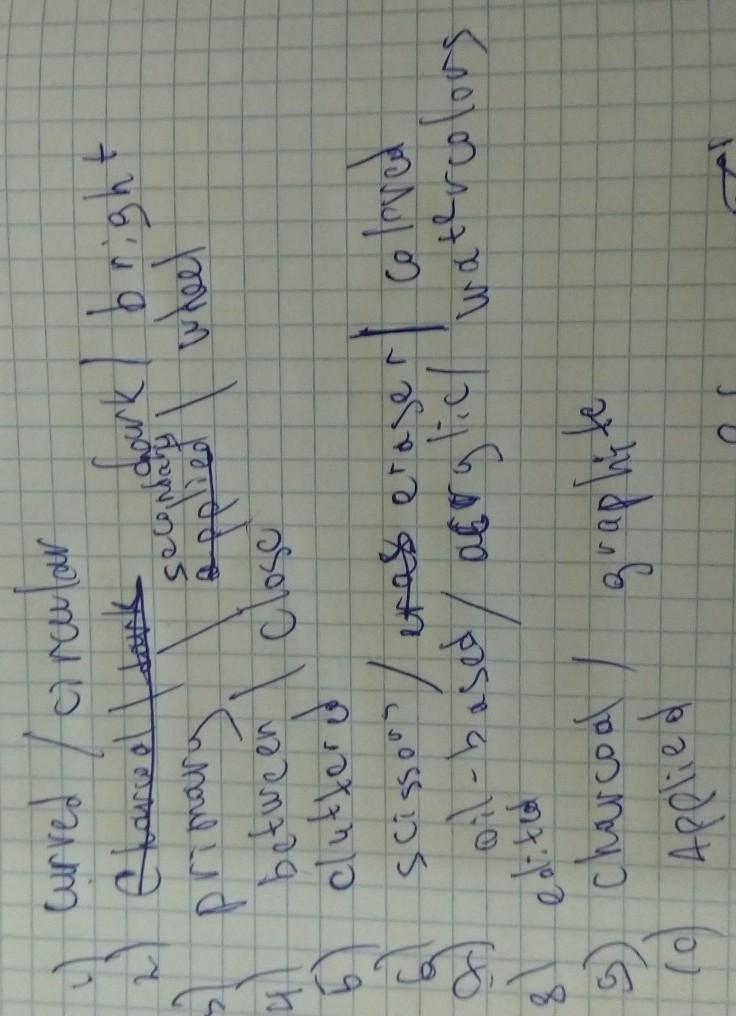 1) curved / circular
2) charcoal / dark dark / bright
3) primary / secondary applied / wheel
4) between / close
5) cluttered
6) scissors / eras eraser / colored
7) oil-based / acrylic / watercolors
8) edited
9) charcoal / graphite
10) Applied